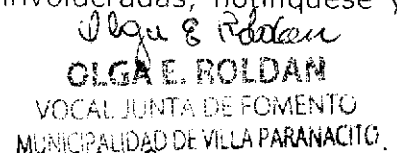 involucradas, notifíquese y
Olga E Roldan
OLGA E. ROLDAN
VOCAL JUNTA DE FOMENTO
MUNICIPALIDAD DE VILLA PARANACITO